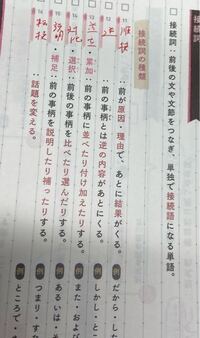 接続詞
□ 接続詞：前後の文や文節をつなぎ、単独で接続語になる単語。
接続詞の種類
11 順接 …前が原因・理由で、あとに結果がくる。 例 だから・した
12 逆接 …前の事柄とは逆の内容があとにくる。 例 しかし・と
13 並立・累加…前の事柄に並べたり付け加えたりする。 例 また・および
14 対比・選択…前後の事柄を比べたり選んだりする。 例 あるいは・そ
15 説明・補足…前の事柄を説明したり補ったりする。 例 つまり・すな
16 転換 …話題を変える。 例 ところで・